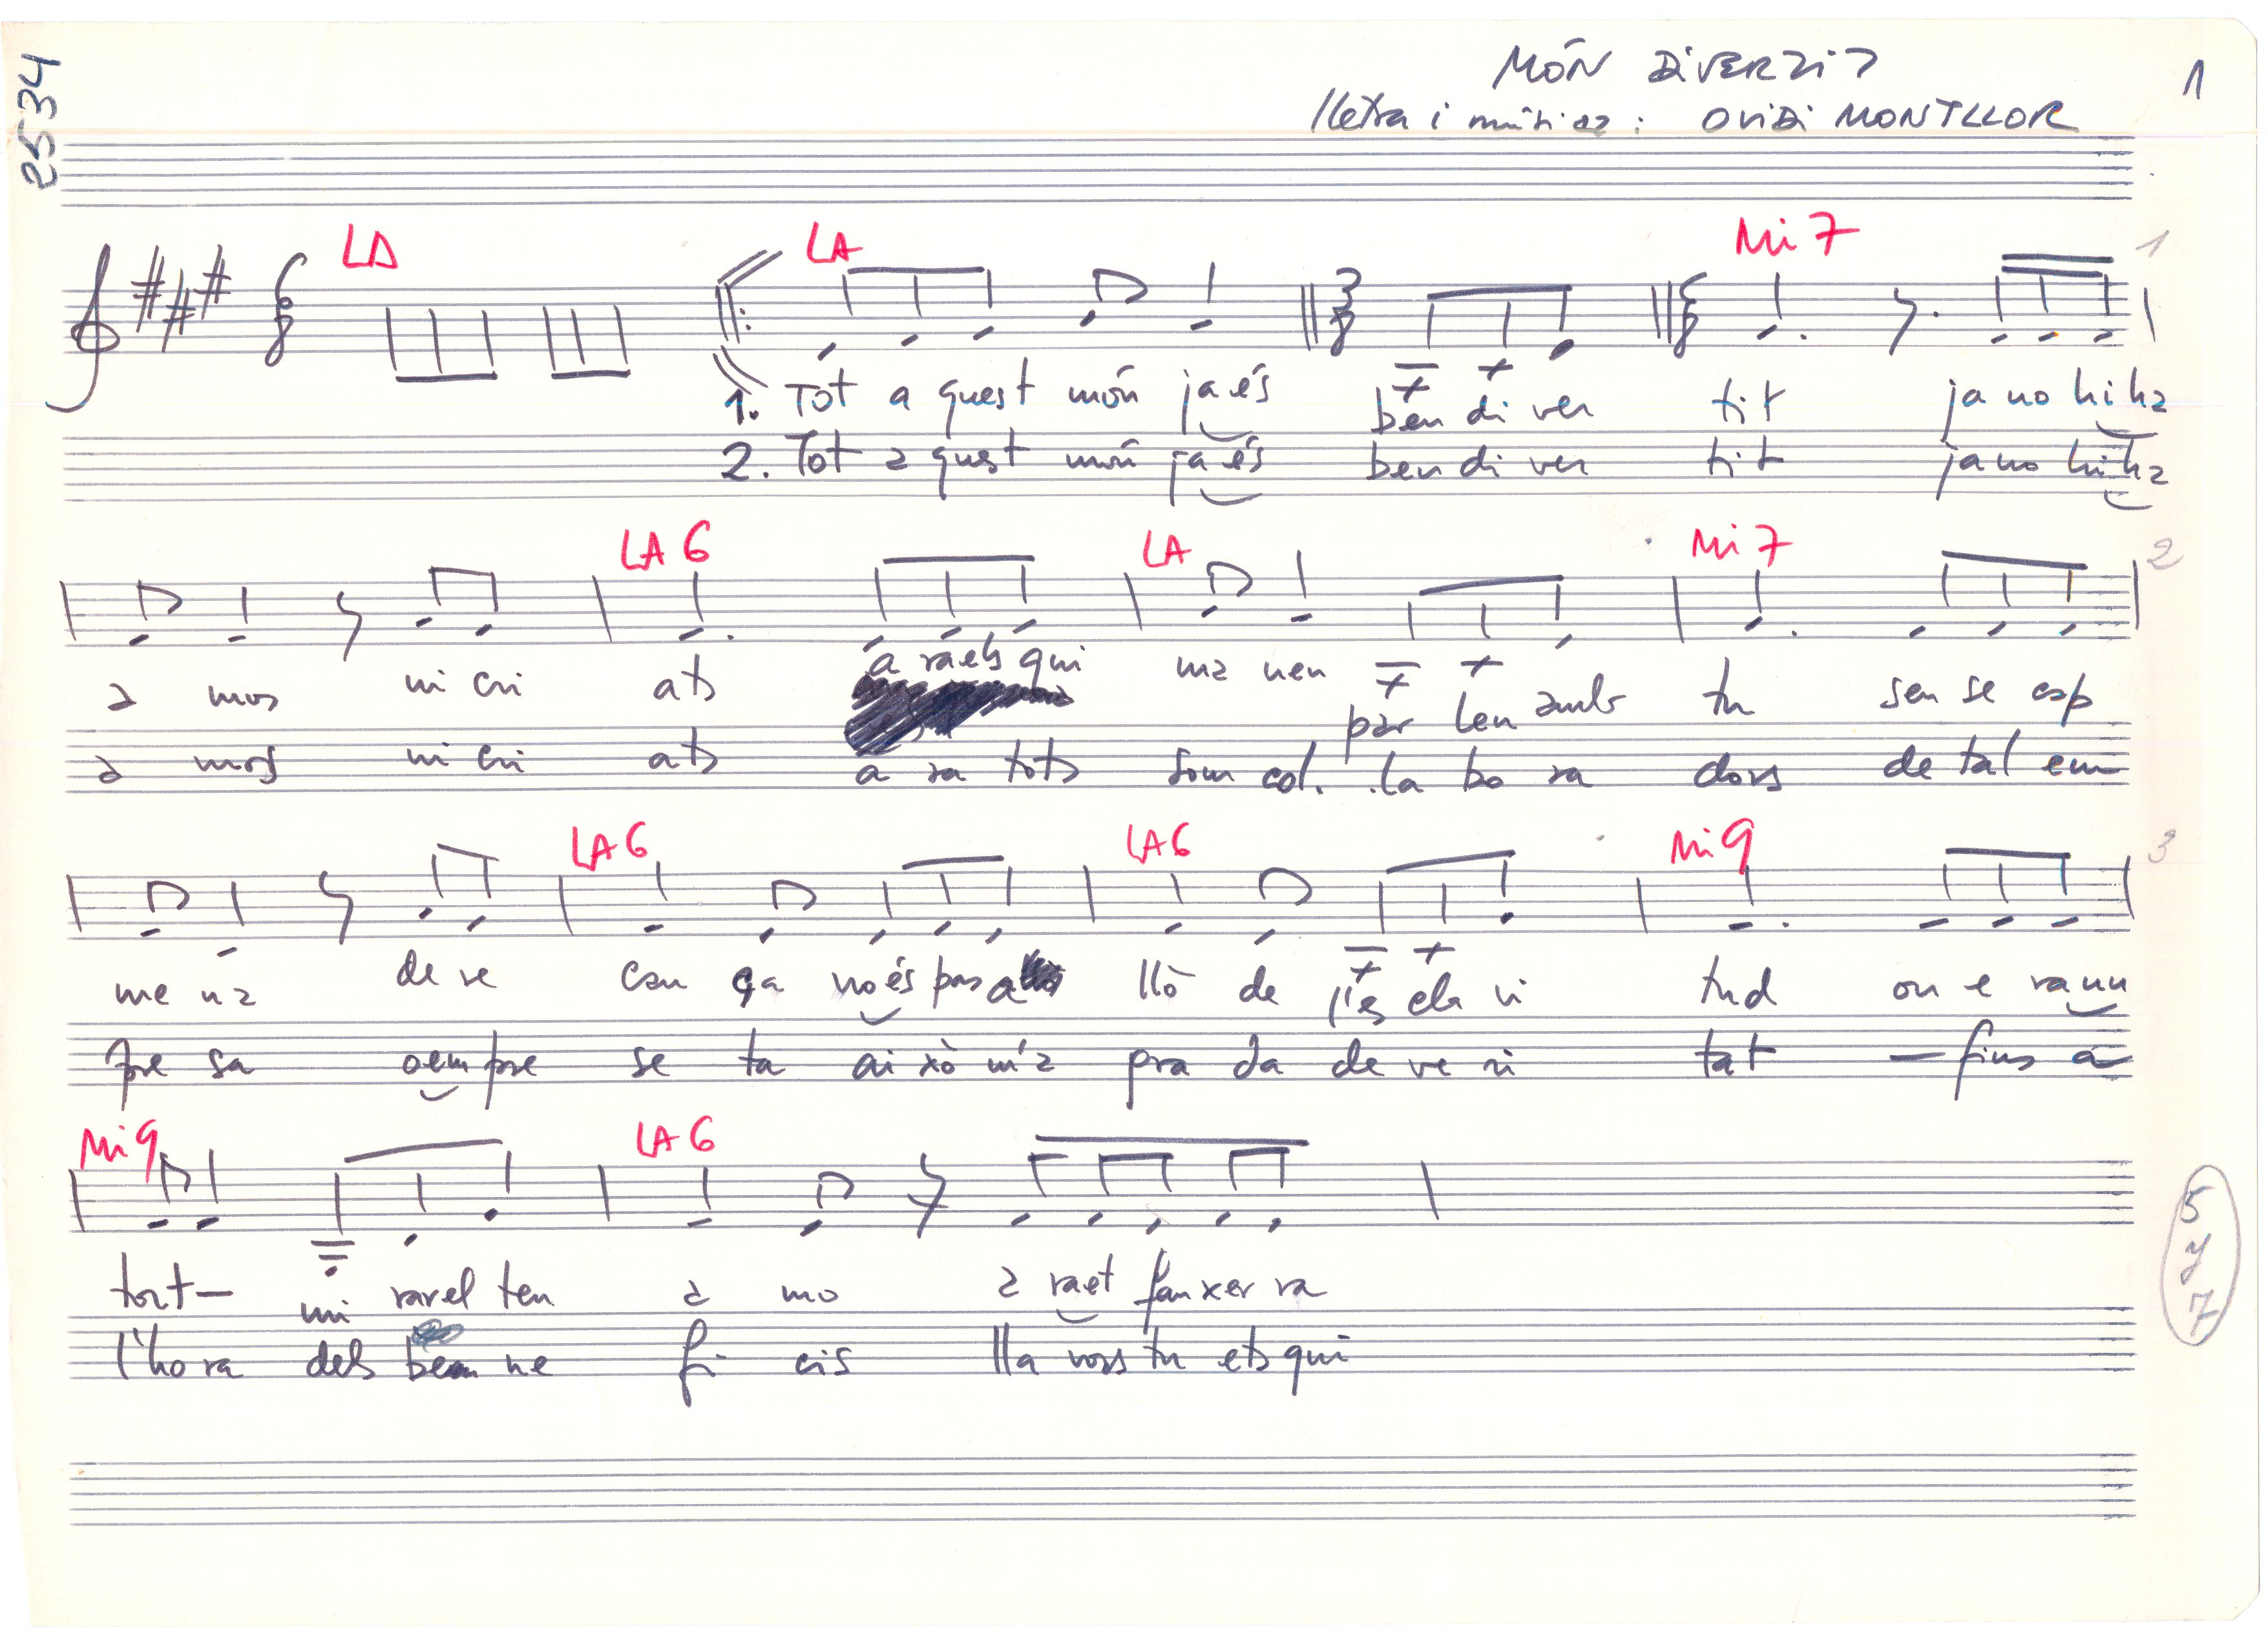 2534
MÓN DiVERTiT
1
lletra i música: OViDi MONTLLOR
LA LA Mi 7
1
1. Tot a quest món ja és ben di ver tit ja no hi ha
2. Tot a quest món ja és ben di ver tit ja no hi ha
LA 6 LA Mi 7
2
a mos ni cri ats a ra els qui ma nen par len amb tu sen se esp
a mos ni cri ats a ra tots som col. la bo ra dors de tal em
LA 6 LA 6 Mi 9
3
me na de re can ça no és pas a llò de l'es cla vi tud on e ra un
pre sa sem pre se ta ai xò m'a gra da de ve ri tat — fins a
Mi 9 LA 6
tort — mi rar el ten a mo a ra et fan xer ra
l'ho ra dels be ne fi cis lla vors tu ets qui
5 y 7